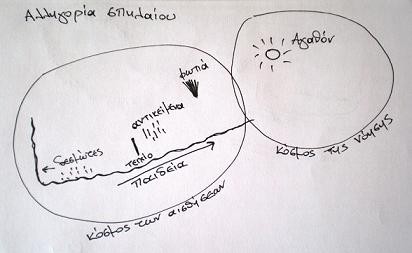 Αλληγορία σπηλαίου
Αγαθόν
φωτιά
αντικείμενα
δεσμώτες
τειχίο
παιδεία
κόσμος της νόησης
κόσμος των αισθήσεων